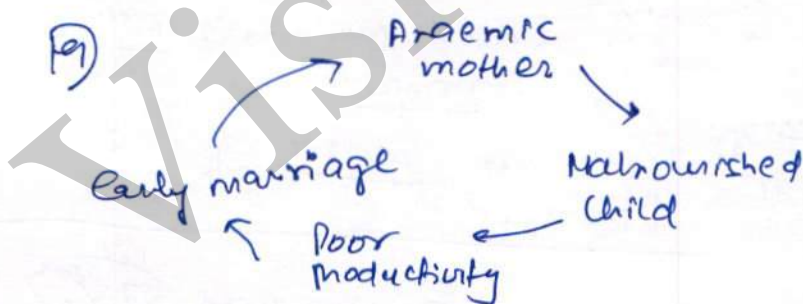 19)
Anaemic
mother
Malnourished
Child
Poor
productivity
Early marriage
Vis